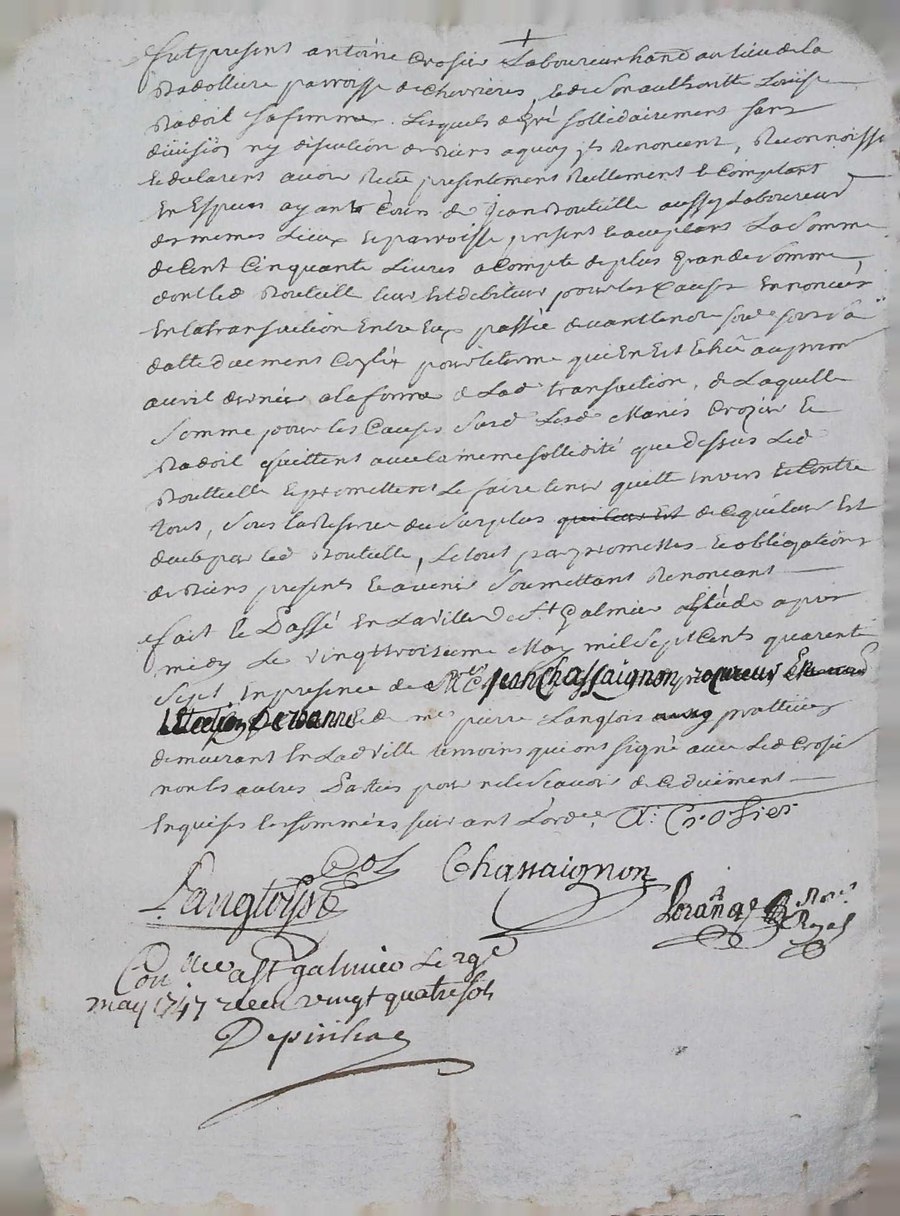 fut present antoine Crosier Laboureur hand au lieu de la
Radolliere parroisse de Chevrieres, & de son authorité Louise
Radoil sa femme. Lesquels de gré sollidairement sans
division ny discution de biens a quoy ils Renoncent, Reconnoisse
& declarent avoir Receu presentement Reellement & Comptant
En Especes ayant Cours de Jean Bouteille aussy Laboureur
des memes Lieux & parroisse, present & acceptant La Somme
de Cent Cinquante Livres a Compte de plus grande Somme
dont led Bouteille leur Est debiteur pour les Causes Ennoncées
En la transaction Entre Eux passée devant le nore
dattée duement pour le terme qui En Est Echu au premr
avril dernier a la forme de Lad transaction, de Laquelle
Somme pour les Causes Susd Lesd Mariés Crozier &
Radoil quittent avec la meme sollidité que dessus Led
Bouteille & promettent Le faire tenir quitte Envers & Contre
tous, Sous la Reserve du Surplus qui leur Est de Ce qui leur Est
deub par led Bouteille, Le tout par promesses & obligations
de biens presents & avenir Soumettant Renonçant
fait & Passé En La Ville de St Galmier Estude apres
midy Le vingttroisieme May mil sept Cents quarente
Sept, En presence de Me Jean Chassaignon procureur En
L'Election de roanne & de me pierre Langlois pratticien
demeurant En Lad Ville temoins qui ont signé avec Led Crosier
non les autres Parties pour ne le Scavoir de Ce duëment
Enquises & Sommées suivant L'orde. A: Crosier
Langlois Chassaignon
Nore
Royal
Con llee a St galmier Le 29e
may 1747 receu vingt quatre sols
Depinhac